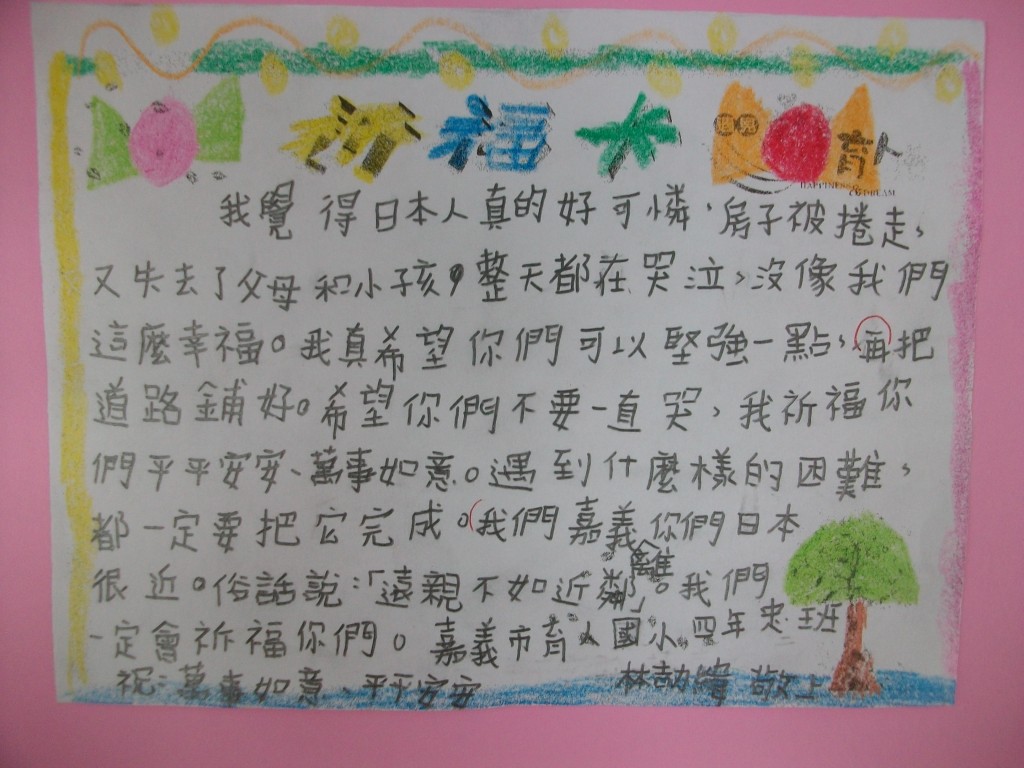 祈福卡
遇見
育人
HAPPINESS & DREAM
我覺得日本人真的好可憐,房子被捲走,
又失去了父母和小孩,整天都在哭泣,沒像我們
這麼幸福。我真希望你們可以堅強一點,再把
道路鋪好。希望你們不要一直哭,我祈福你
們平平安安、萬事如意。遇到什麼樣的困難,
都一定要把它完成。我們嘉義離你們日本
很近。俗話說:「遠親不如近鄰」。我們
一定會祈福你們。嘉義市育人國小四年忠班
祝:萬事如意、平平安安 林 敬上